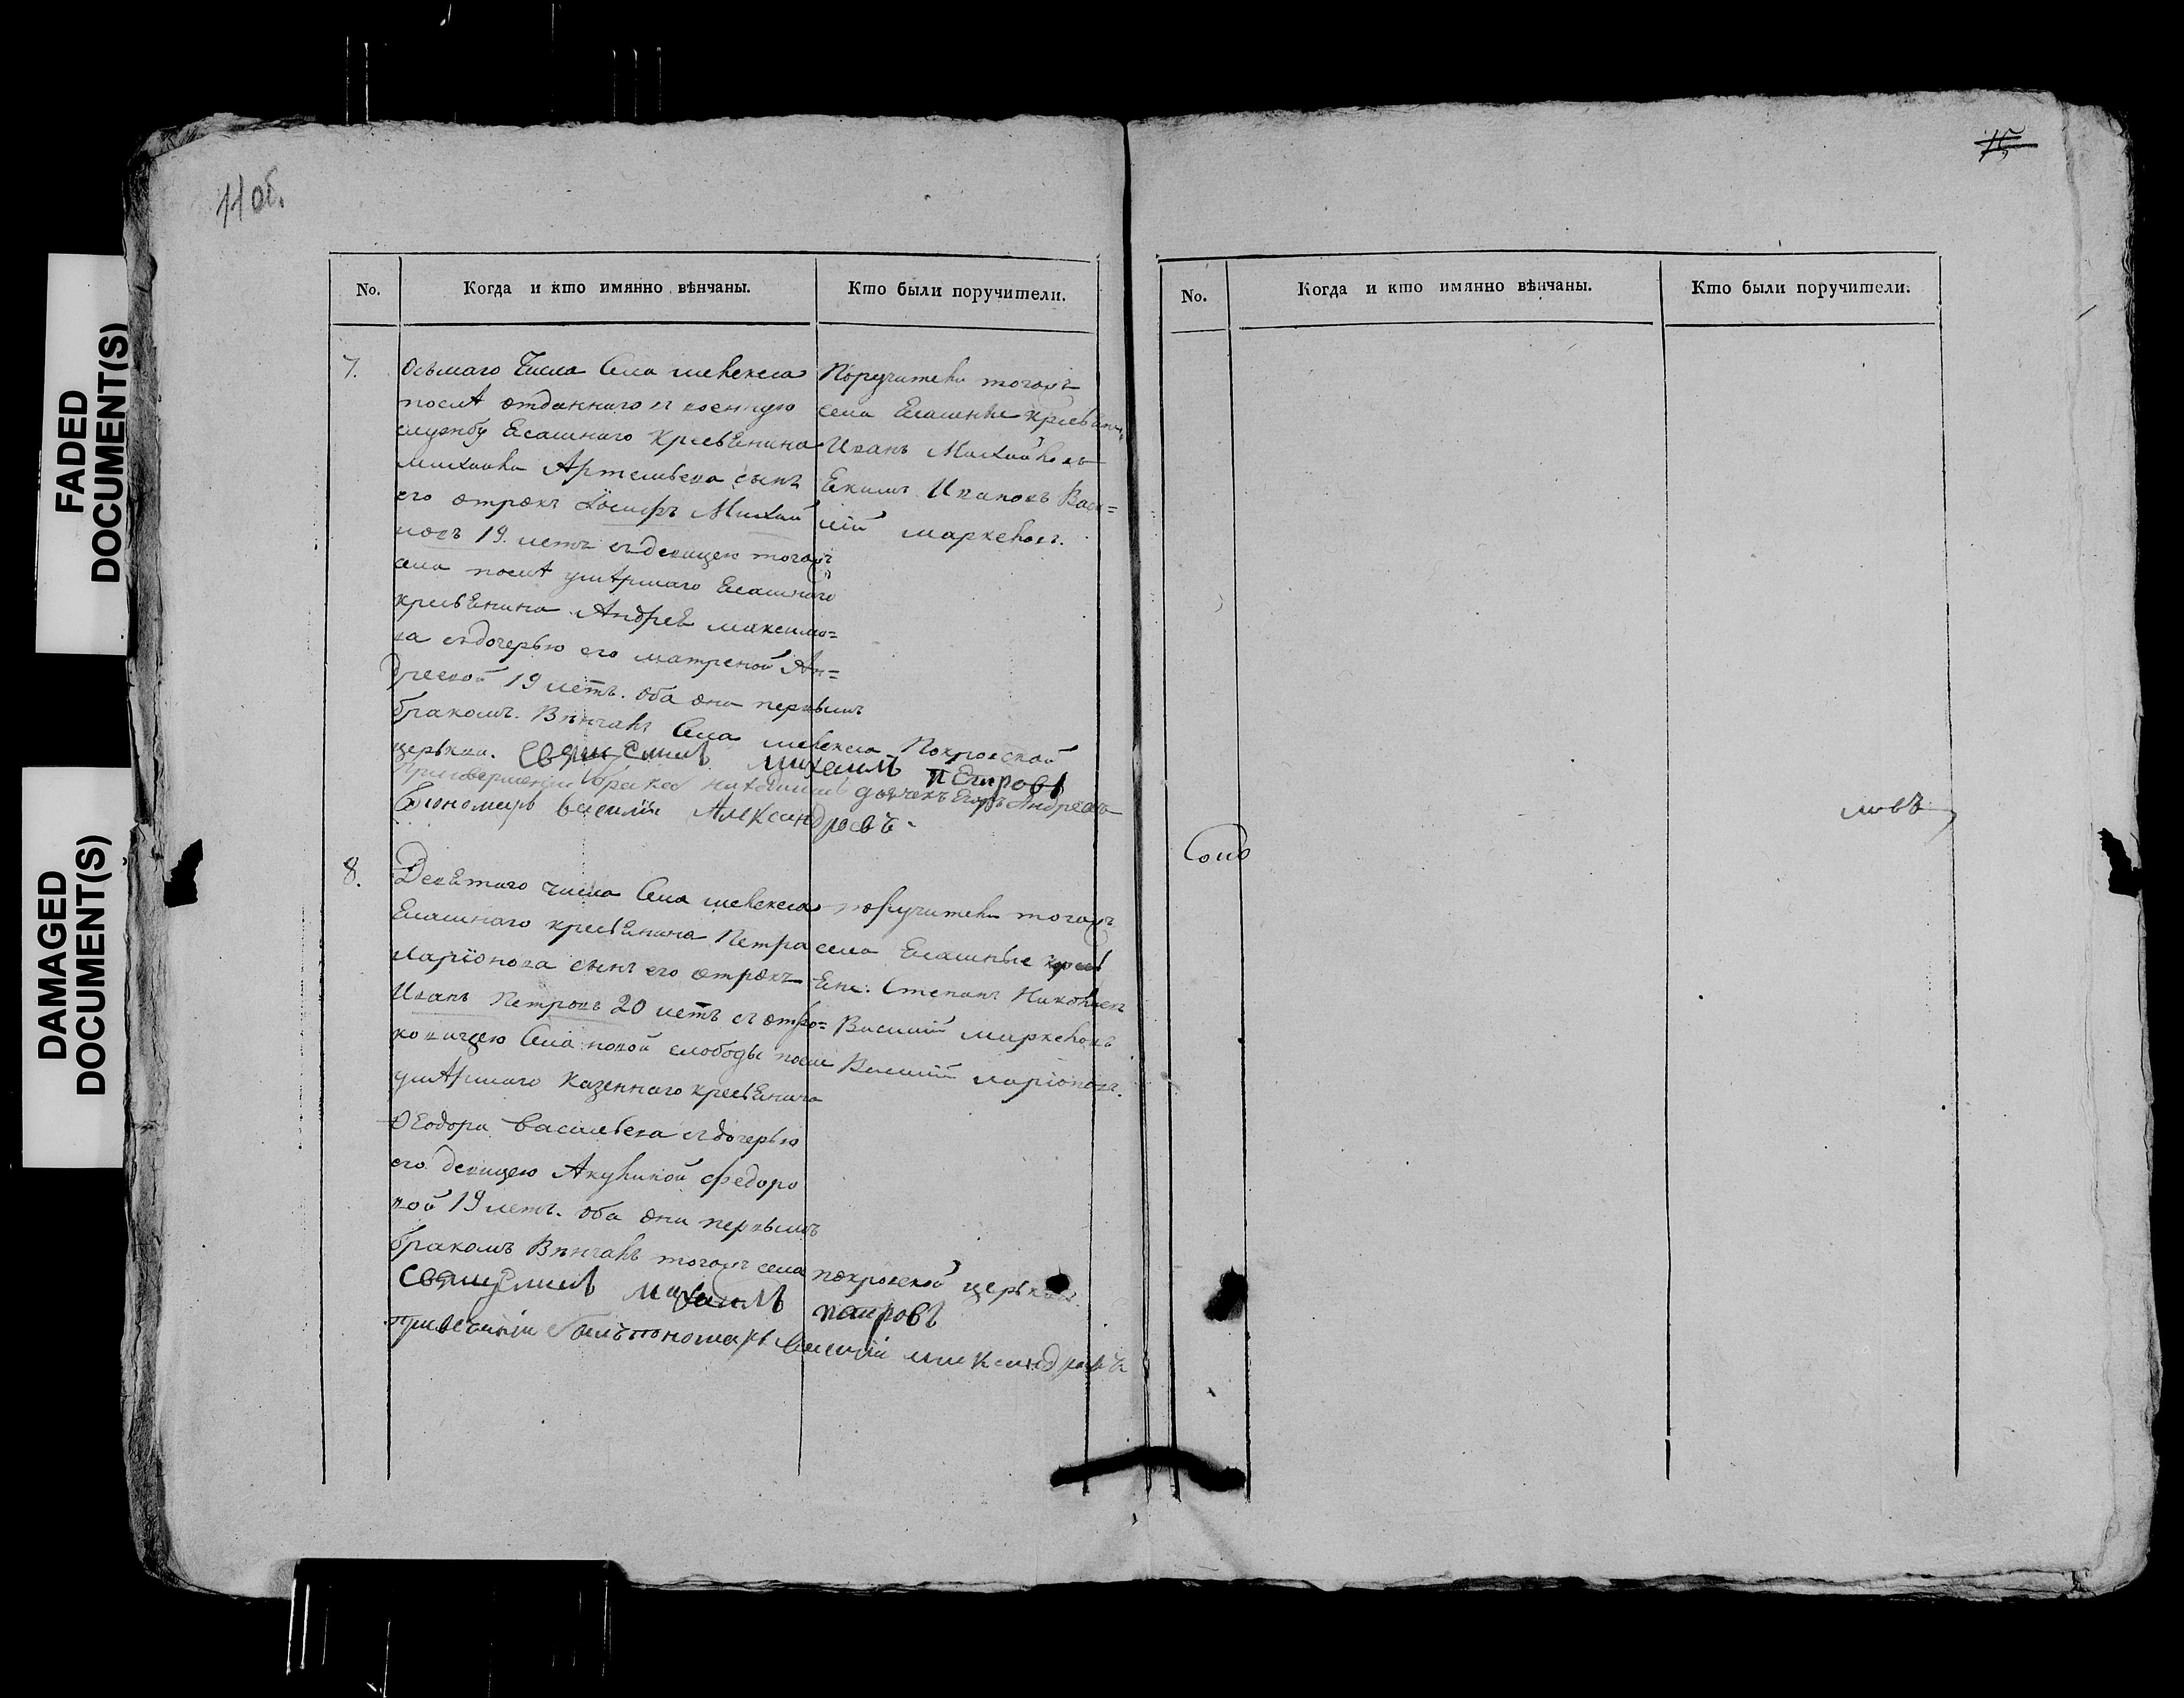 FADED
DOCUMENT(S)
DAMAGED
DOCUMENT(S)
11 об.
15
No. Когда и кто имянно вѣнчаны. Кто были поручители.
7.
Осьмаго числа села шевекса
послѣ отданнаго в военную
службу Ясашнаго крестьянина
михаила Артемьева сынъ
его отрокъ Иосифъ Михай
ловъ 19. летъ с девицею тогожъ
села послѣ умѣршаго Ясашнаго
крестьянина Андрея максимо=
ва с дочерью его матреной Ан=
дреевой 19 летъ. оба они первымъ
бракомъ. Вѣнчалъ Села шевекса Покровской
церькви. Священникъ михаилъ пЕтровъ
дьячекъ Егоръ Андреевъ
пономарь василий Александровъ
Поручители тогожъ
села Ясашные крестьяня
Иванъ Михайловъ
Екимъ Ивановъ Васи=
лій маркеловъ.
8.
Девятаго числа Села шевекса
Ясашнаго крестьянина Петра
ларіонова сынъ его отрокъ
Иванъ Петровъ 20 летъ с отро=
ковицею Села новой слободы после
умѣршаго казеннаго крестьянина
Ѳеодора васильева с дочерью
его девицею Акулиной федоро
вой 19 летъ. оба они первымъ
бракомъ Вѣнчалъ тогожъ села покровской церькви.
Священникъ михаилъ петровъ
былъ пономарь василий александровъ
поручители тогожъ
села Ясашные крест
яне: Степанъ Николаевъ
Василий маркеловъ
Василий ларіоновъ.
No. Когда и кто имянно вѣнчаны. Кто были поручители.
ловъ